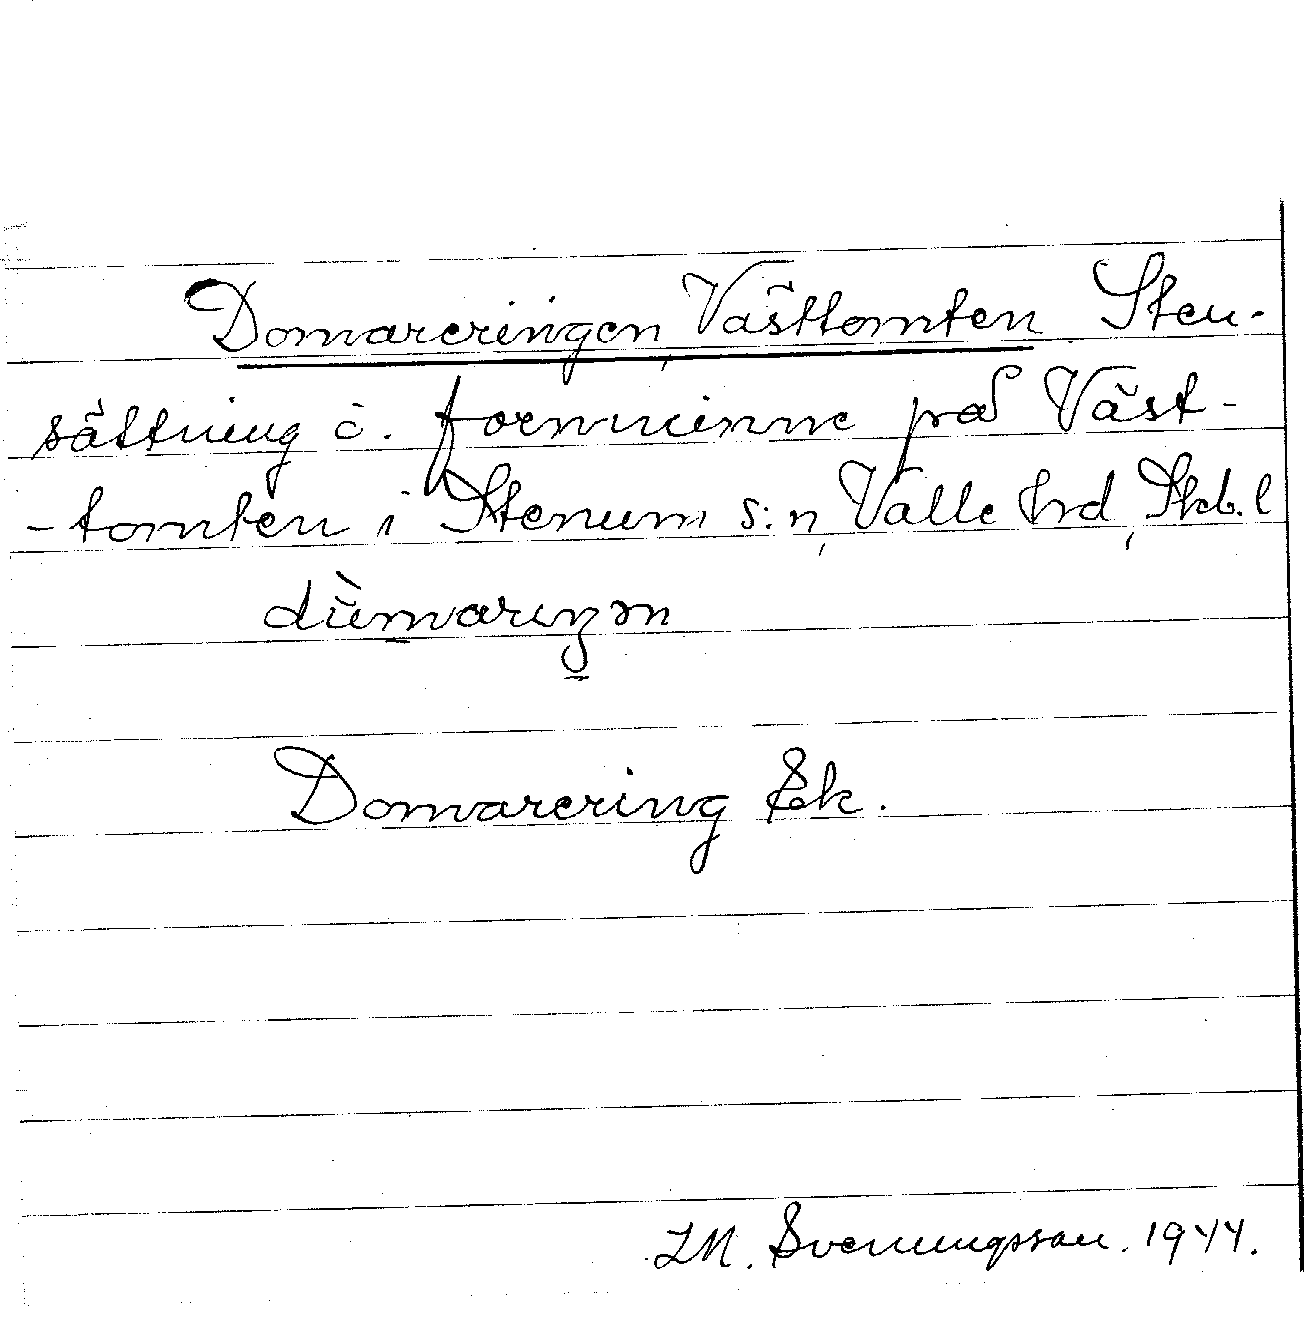 Domareringen, Västtomten Sten-
sättning o. fornminne på Väst-
-tomten i Stenum s:n, Valle hrd, Skb. l
Domarering Ek.
I.M. Svenungsson. 1944.